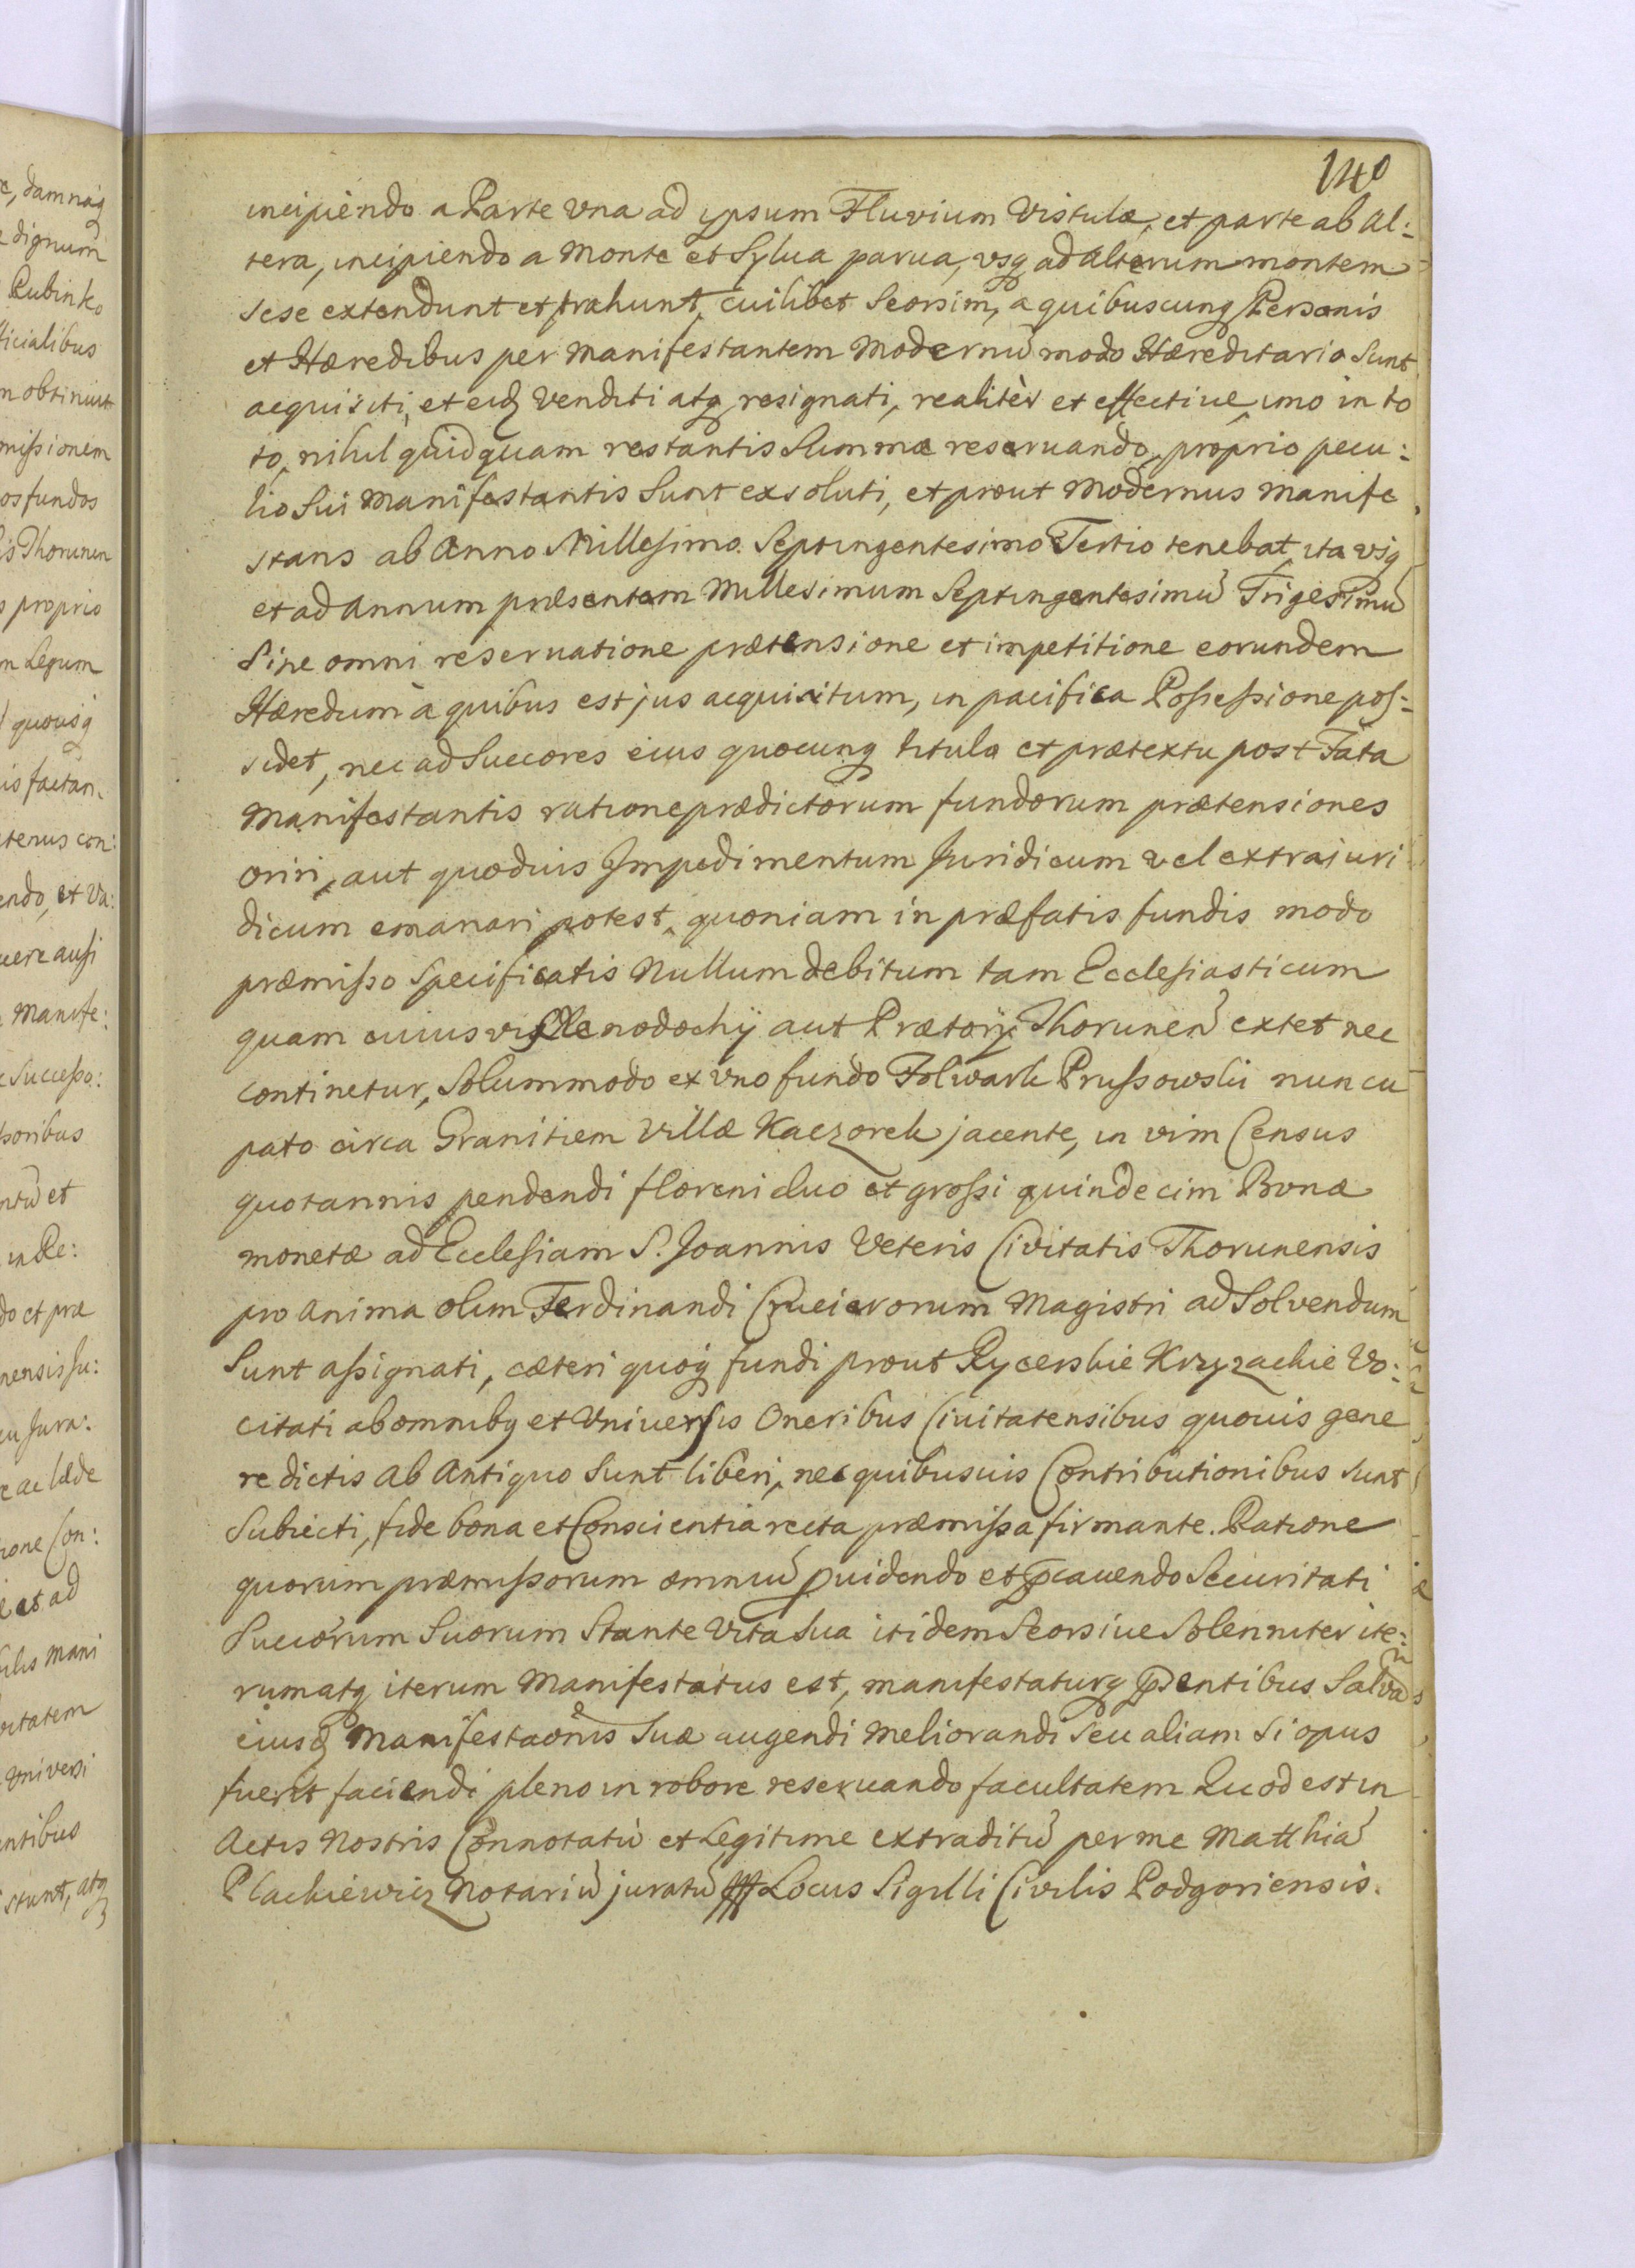 140
incipiendo a Parte Vna ad ypsum Fluvium Vistulæ, et parte ab Al:
tera, incipiendo a Monte et Sylua parua, vsq ad alterum montem
sese extendunt et trahunt, cuilibet Seorsim, a quibuscunq Personis
et Hæredibus per Manifestantem Modernũ modo Hæreditario Sunt
acquisiti, et eid Venditi atq resignati, realitèr et effectiue, imo in to
to, nihil quidquam restantis Summæ reseruando, proprio pecu:
lio Sui Manifestantis Sunt exsoluti, et prout Modernus Manife
stans ab Anno Millesimo Septingentesimo Tertio tenebat, ita vsq
et ad Annum præsentem Millesimum Septingentesimũ Trigesimũ
Sine omni reseruatione prætensione et impetitione eorundem
Hæredum à quibus est jus acquisitum, in pacifica Possessione pos:
sidet, nec ad Succores eius quocunq titulo et prætextu post Fata
Manifestantis ratione prædictorum fundorum prætensiones
oriri, aut quoduis Impedimentum Juridicum vel extrajuri
dicum emanari potest, quoniam in præfatis fundis modo
præmisso Specificatis Nullum debitum tam Ecclesiasticum
quam cuiusvis Xenodochij aut Prætorij Thorunen̄ extet nec
continetur, Solummodo ex vno fundo Folwark Prussowski nuncu
pato circa Granitiem Villæ Kaczorek jacente, in vim Census
quotannis pendendi floreni duo et grossi quindecim Bonæ
monetæ ad Ecclesiam S. Joannis Veteris Civitatis Thorunensis
pro Anima olim Ferdinandi Cruciervorum Magistri ad Solvendum
Sunt assignati, cæteri quoq fundi prout Rycerskie Krzyzackie Vo:
citati ab omnibq et Vniversis Oneribus Ciuitatensibus quouis gene
re dictis ab Antiquo Sunt liberi, nec quibusuis Contributionibus Sunt
Subiecti, fide bona et Conscientia recta præmissa firmante. Ratione
quorum præmissorum omniũ ꝓuidendo et p̄cauendo Securitati
Succorum Suorum Stante Vita Sua itidem Seorsiue Solenniter ite:
rumatq iterum Manifestatus est, manifestaturq p̄sentibus Salva
eiusd Manifestaōnis Suæ augendi Meliorandi Seu aliam Si opus
fuerit faciendi pleno in robore reseruando facultatem Quod est in
Actis Nostris Connotatũ et Legitime extraditũ per me Matthiã
Plackiewicz Notariũ juratũ Locus Sigilli Civilis Podgoriensis.